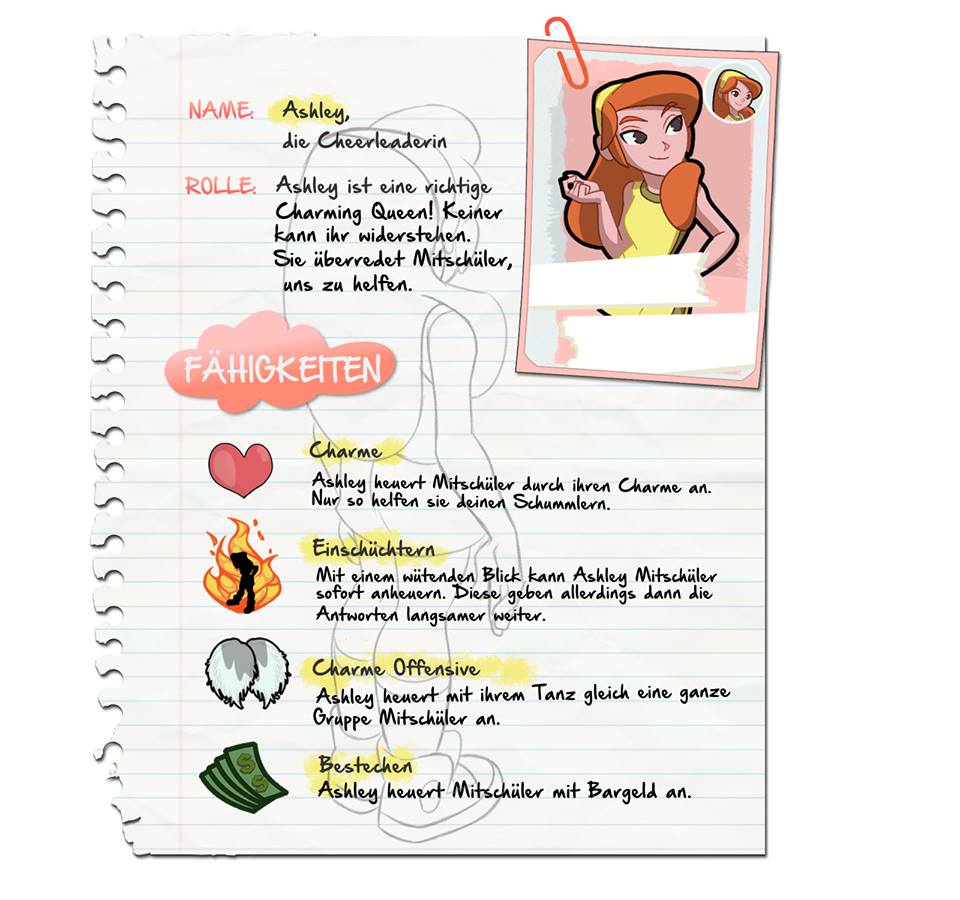 NAME: Ashley,
die Cheerleaderin
ROLLE: Ashley ist eine richtige
Charming Queen! Keiner
kann ihr widerstehen.
Sie überredet Mitschüler,
uns zu helfen.
FÄHIGKEITEN
Charme
Ashley heuert Mitschüler durch ihren Charme an.
Nur so helfen sie deinen Schummlern.
Einschüchtern
Mit einem wütenden Blick kann Ashley Mitschüler
sofort anheuern. Diese geben allerdings dann die
Antworten langsamer weiter.
Charme Offensive
Ashley heuert mit ihrem Tanz gleich eine ganze
Gruppe Mitschüler an.
Bestechen
Ashley heuert Mitschüler mit Bargeld an.